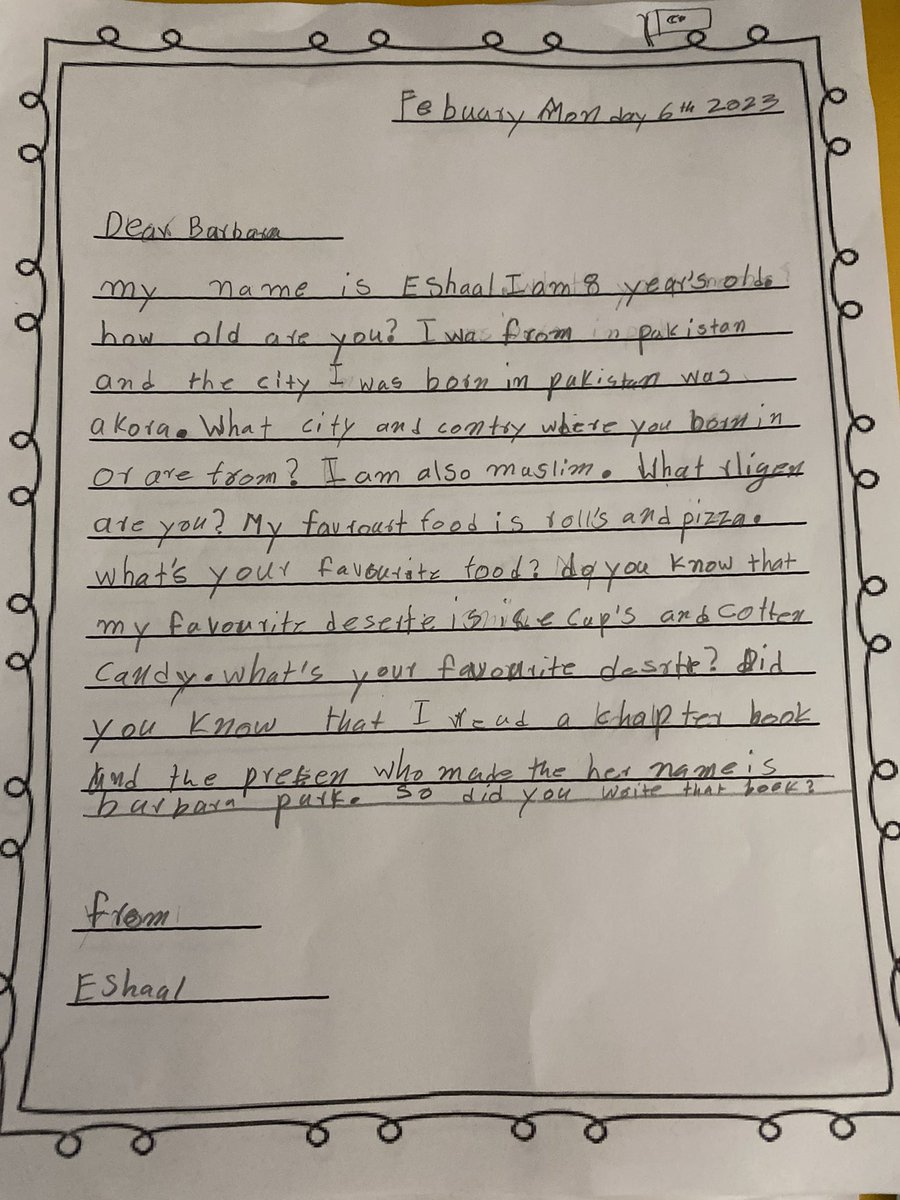 Febuary Monday 6th 2023
Dear Barbara
my name is Eshaal I am 8 year's old.
how old are you? I was from in pakistan
and the city I was born in pakistan was
akora. What city and contry where you born in
or are from? I am also muslim. What rligen
are you? My favroust food is roll's and pizza.
what's your favourite food? do you know that
my favourite deserte is ice cup's and cotten
candy. what's your favourite desrte? Did
you know that I read a khapter book
And the preten who made the her name is
barbara park. so did you write that book?
from
Eshaal